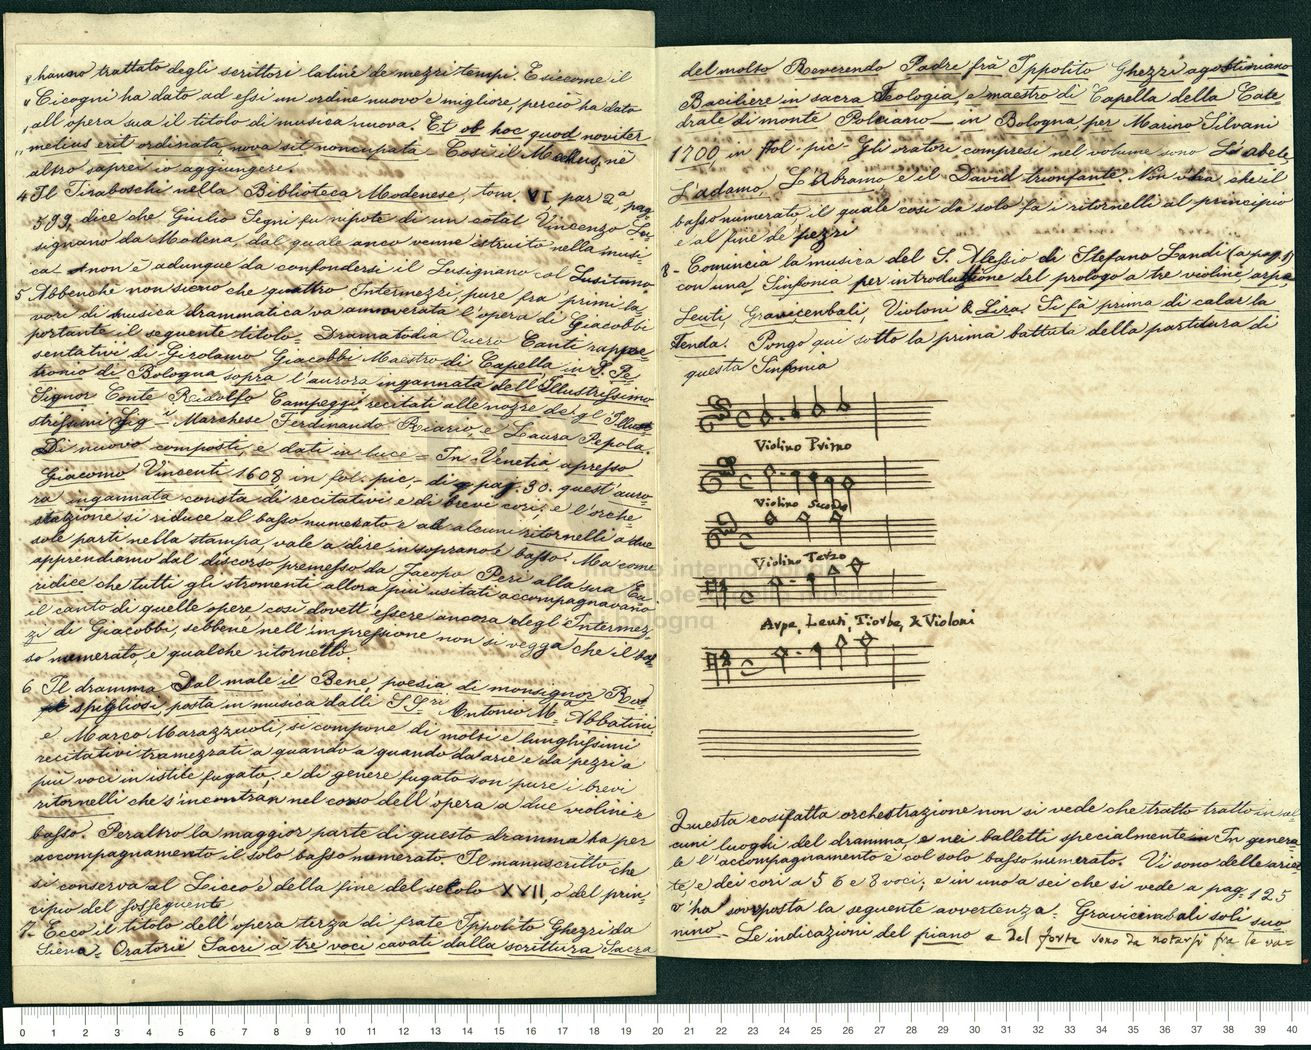 " hanno trattato degli scrittori latini de mezzi tempi. E siccome il
" Cicogni ha dato ad essi un ordine nuovo e migliore, perciò ha dato
" all'opera sua il titolo di musica nuova. Et ob hoc quod noviter
" melius erit ordinata, nova sit noncupata - Così il Mehus, nè
altro saprei io aggiungere.
4 Il Tiraboschi nella Biblioteca Modenese, tom. VI par 2a pag.
599, dice che Giulio Segni fu nipote di un cotal Vincenzo Lu-
signano da Modena, dal quale anco venne istruito nella musi
ca. - non è adunque da confondersi il Lusignano col Lusitano
5 Abbenche non sieno che quattro Intermezzi, pure fra' primi la-
vori di musica drammatica va annoverata l'opera di Giacobbi
portante il seguente titolo = Dramatodia Overo Canti rappre-
sentativi di Girolamo Giacobbi Maestro di Capella in S. Pe-
tronio di Bologna sopra l'aurora ingannata dell'Illustrissimo
Signor Conte Ridolfo Campeggi recitati alle nozze degl'Illust.
strissimi Sig.ri Marchese Ferdinando Riario, e Laura Pepola.
Di nuovo composti, e dati in luce = In Venetia apresso
Giacomo Vincenti 1608, in fol. pic., - di pag. 30. quest'auro-
ra ingannata consta di recitativi e di brevi cori, e l'orche-
strazione si riduce al basso numerato e ad alcuni ritornelli a due
sole parti nella stampa, vale a dire in soprano e basso. Ma come
apprendiamo dal discorso premesso da Jacopo Peri alla sua Eu-
ridice che tutti gli stromenti allora più usitati accompagnavano
il canto di quelle opere così dovett'essere ancora degl'Intermez
zi di Giacobbi, sebbene nell'impressione non si vegga che il bas
so numerato, e qualche ritornello.
6 Il dramma Dal male il Bene, poesia di monsignor Ros
spigliosi, posta in musica dalli S.Sri Antonio Ma Abbatini
e Marco Marazzuoli, si compone di molti e lunghissimi
recitativi tramezzati a quando a quando da arie e da pezzi a
più voci in istile fugato, e di genere fugato son pure i brevi
ritornelli che s'incontran nel corso dell'opera a due violini e
basso. Peraltro la maggior parte di questo dramma ha per
accompagnamento il solo basso numerato. Il manuscritto che
si conserva al Liceo è della fine del secolo XVII, o del prin-
cipio del susseguente
7. Ecco il titolo dell'opera terza di frate Ippolito Ghezzi da
Siena = Oratorii Sacri a tre voci cavati dalla scrittura Sacra
del molto Reverendo Padre fra Ippolito Ghezzi agostiniano
Baciliere in sacra Teologia, e maestro di Capella della Cate
drale di monte Pulciano - in Bologna, per Marino Silvani
1700, in fol. pic - Gli oratori compresi nel volume sono L'abele,
L'adamo, L'Abramo e il David trionfante. Non v'ha che il
basso numerato il quale così da solo fa i ritornelli al principio
e al fine de pezzi
8 - Comincia la musica del S. Alessio di Stefano Landi (a pag. 1)
con una Sinfonia per introduttione del prologo a tre violini, arpe,
Leuti, Gravicenbali, Violoni & Lira. Si fà prima di calar la
Tenda. Pongo qui sotto la prima battuta della partitura di
questa Sinfonia
Violino Primo
Violino Secondo
Violino Terzo
Arpe, Leuti, Tiorbe, & Violoni
Questa cosifatta orchestrazione non si vede che tratto tratto in al-
cuni luoghi del dramma, e nei balletti specialmente In genera
le l'accompagnamento è col solo basso numerato. Vi sono delle ariet
te e dei cori a 5 6 e 8 voci; e in uno a sei che si vede a pag. 125
v'ha sovrapposta la seguente avvertenza = Gravicimbali soli suo
nino - Le indicazioni del piano e del forte sono da notarsi fra le va=
museo internazionale
e biblioteca della musica
di bologna
0 1 2 3 4 5 6 7 8 9 10 11 12 13 14 15 16 17 18 19 20 21 22 23 24 25 26 27 28 29 30 31 32 33 34 35 36 37 38 39 40